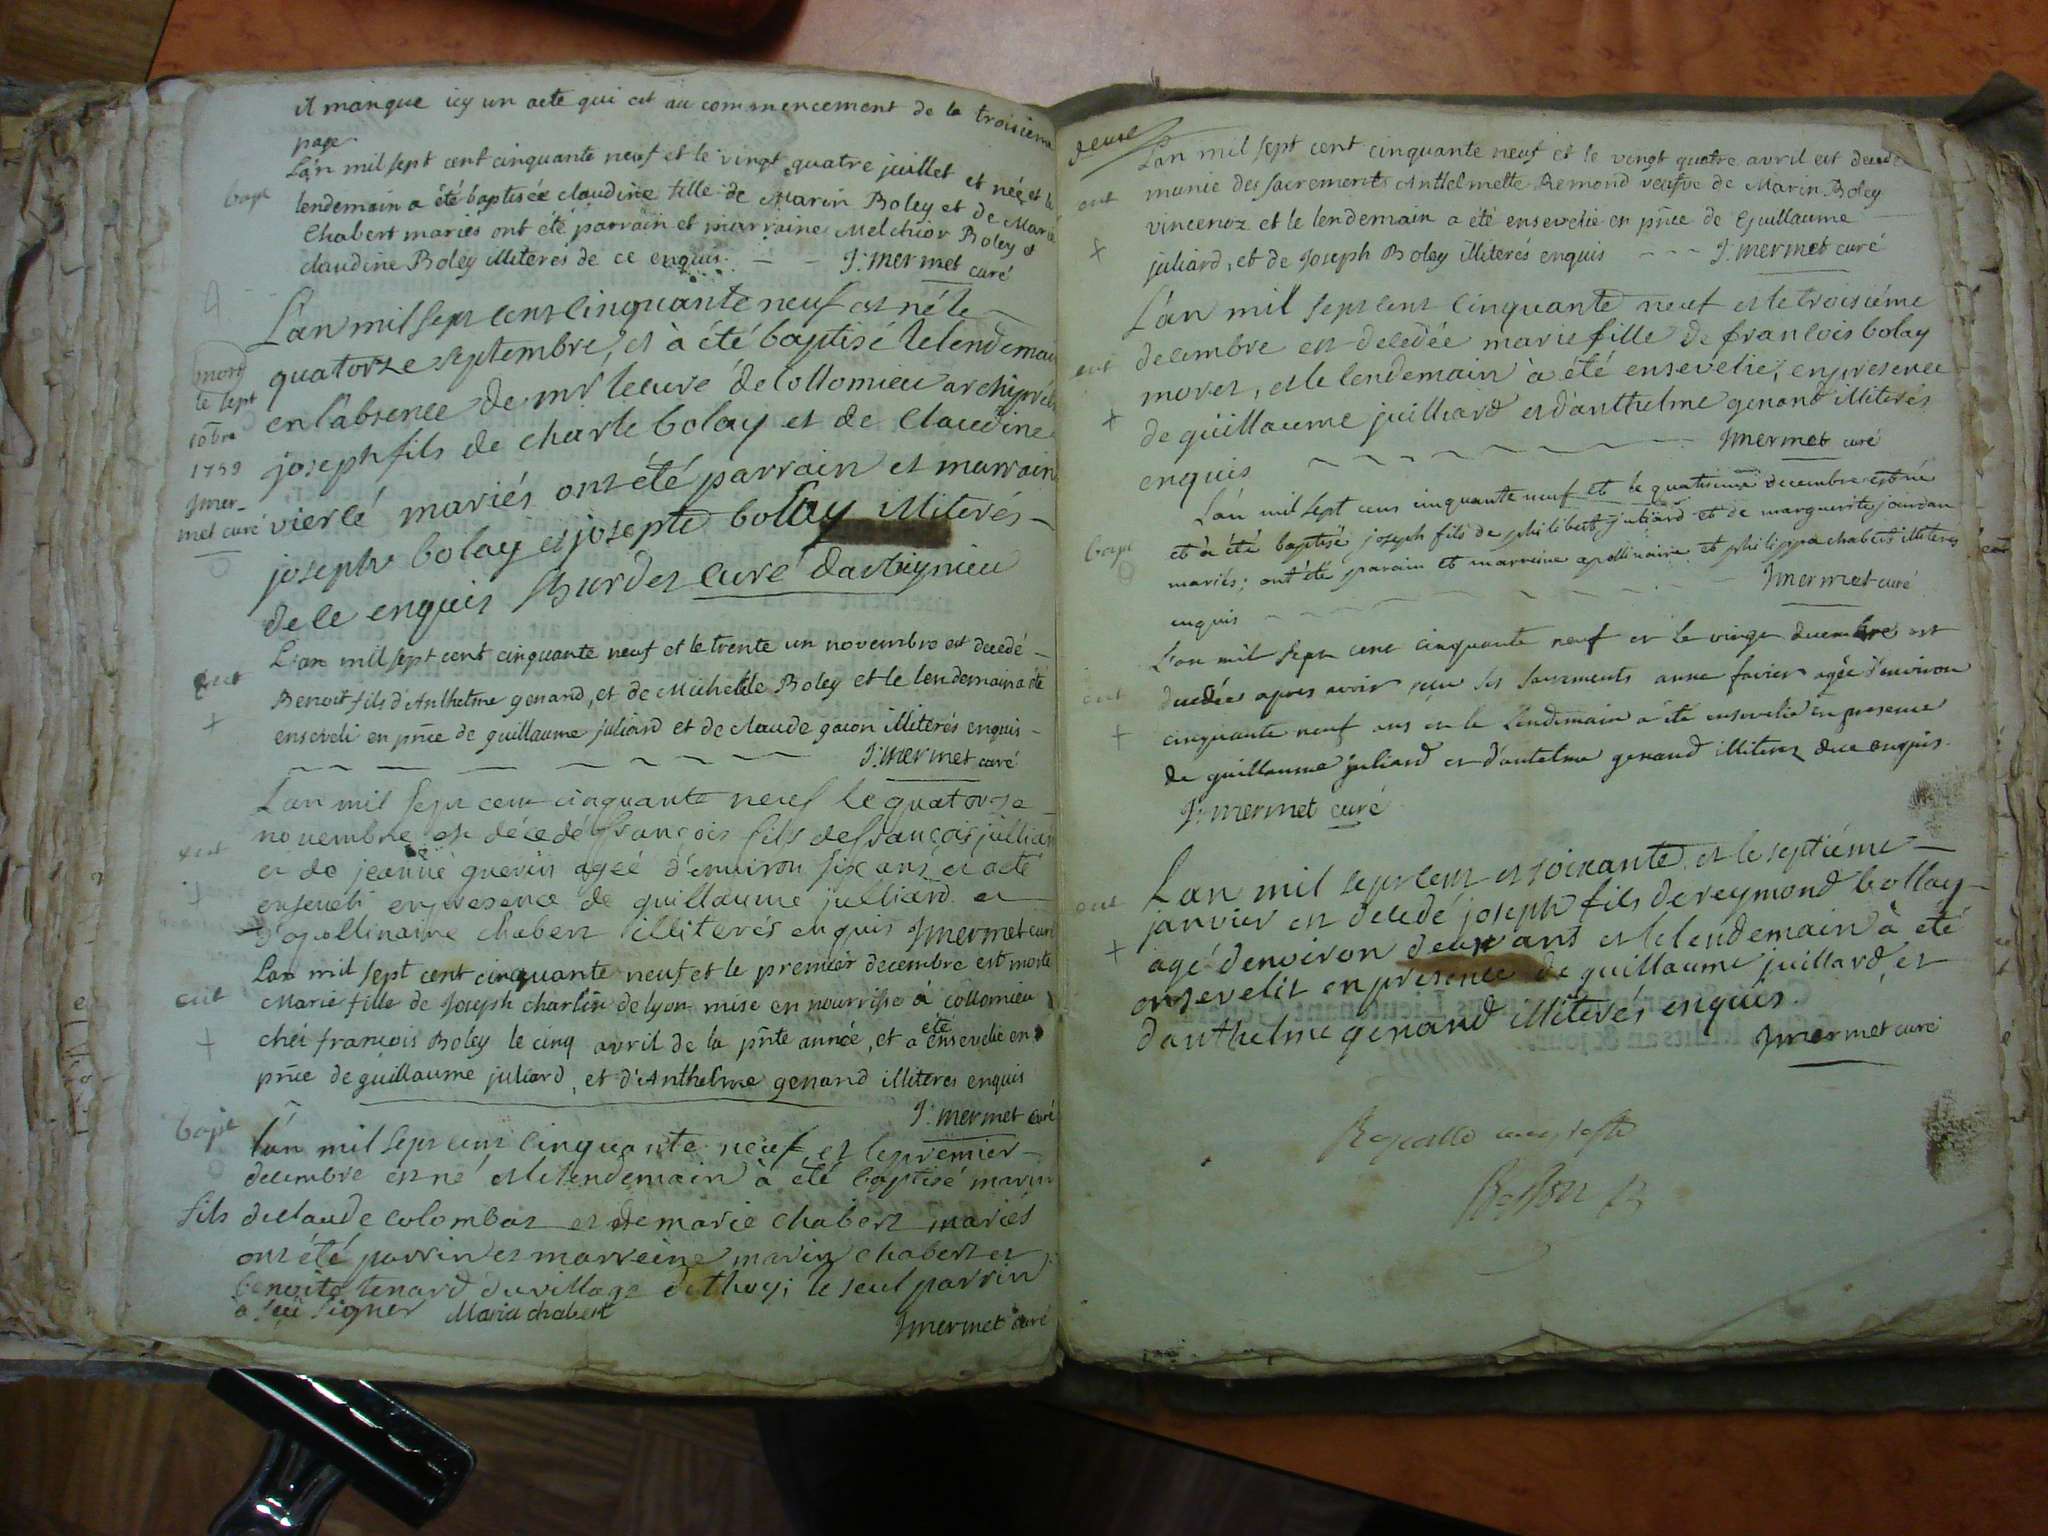 il manque icy un acte qui est au commencement de la troisieme
page
bapt
L'an mil sept cent cinquante neuf et le vingt quatre juillet et née et le
lendemain a été baptisée claudine fille de Marin Boley et de Marie
Chabert mariés ont été parrain et marraine Melchior Boley et
claudine Boley illiteres de ce enquis. J: mermet curé
L'an mil sept cent cinquante neuf est né le
quatorze septembre, et à été baptisé le lendemain
en l'absence de mr le curé de Collomieu archiprêt
joseph fils de charle bolay et de Claudine
vierlé mariés ont été parrain et marraine
joseph bolay et josepte bollay illiterés
de ce enquis Burdet curé d'arbignieu
mort
le sept
10bre
1759
Jmer-
met curé
ent
L'an mil sept cent cinquante neuf et le trente un novembre est decedé
Benoit fils d'Anthelme genand, et de Michelle Boley et le lendemain a été
enseveli en pñce de guillaume juliard et de claude gacon illiterés enquis
J: mermet curé
ent
L'an mil sept cent cinquante neuf le quatorze
novembre est décedé françois fils de françois jullian
et de jeanne guerin ageé d'environ six ans et a eté
enseveli en presence de guillaume julliard et
d'apollinaire chabert illiterés enquis Jmermet curé
ent
L'an mil sept cent cinquante neuf et le premier decembre est morte
Marie fille de Joseph charlin de lyon mise en nourrisse à collomieu
chéi françois Boley le cinq avril de la pñte année, et a été ensevelie en
pñce de guillaume juliard, et d'Anthelme genand illiteres enquis
J: mermet curé
bapt
L'an mil sept cent cinquante neuf et le premier
decembre est né et le lendemain à été baptisé marin
fils de claude colombat et de marie chabert mariés
ont été parrin et marreine marin chabert et
benoite tenard du village de thoy; le seul parrin
a sçu signer Marin chabert Jmermet curé
deuxe
ent
L'an mil sept cent cinquante neuf et le vingt quatre avril est decedé
munie des sacrements Anthelmette Remond veufve de Marin Boley
vincenoz et le lendemain a été ensevelie en pñce de Guillaume
juliard, et de Joseph Boley illiterés enquis J: mermet curé
ent
L'an mil sept cent cinquante neuf et le troisiéme
decembre est decedée marie fille de francois bolay
moret, et le lendemain à été ensevelie, en presence
de guillaume juilliard et d'anthelme genand illiterés
enquis Jmermet curé
bapt
L'an mil sept cens cinquante neuf et le quatrieme decembre est né
et à été baptisé joseph fils de philibert juliard et de marguerite jourdan
mariés; ont été parain et marreine apollinaire et philippa chabert illiteres
enquis Jmermet curé
ent
L'an mil sept cent cinquante neuf et le vingt decembre est
decedée apres avoir reçu ses sacrements anne favier agée d'environ
cinquante neuf ans et le lendemain a été ensevelie en presence
de guillaume juliard et d'antelme genand illiteres de ce enquis
J: mermet curé
ent
L'an mil sept cent et soixante et le septiéme
janvier est decedé joseph fils de reymond bollay
agé d'environ deux ans et le lendemain à été
ensevelit en presence de guillaume juillard, et
d'anthelme genand illiterés enquis.
Jmermet curé